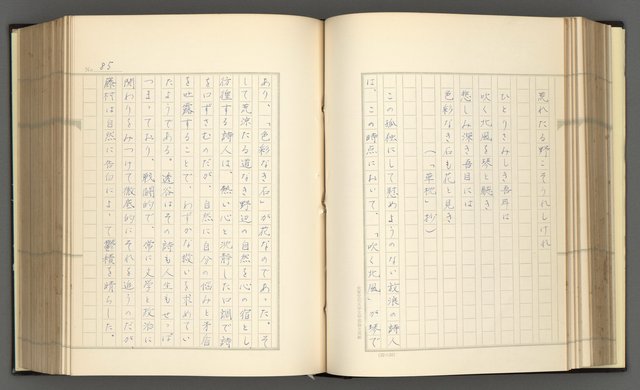 荒れたる野こそうれしけれ
ひとりさみしき吾耳は
吹く北風を琴と聴き
悲しみ深き吾目には
色彩なき石も花と見き
(「草枕」抄)
この孤独にして慰めようのない放浪の詩人
は、この時点において、「吹く北風」が琴で
あり、「色彩なき石」が花なのであった。そ
して荒涼たる道なき野辺の自然を心の宿とし
彷徨する詩人は、熱い心と沈静した口調で詩
を口ずさむのだが、自然に自分の悩みと矛盾
を吐露することで、わずかな救いを求めてい
たようである。透谷はその詩も人生もせっぱ
つまっており、戦闘的で、常に文学と政治に
関わりをみつけて徹底的にそれを追うのだが、
藤村は自然に告白によって鬱積を晴らした。
No. 85
(20×20)